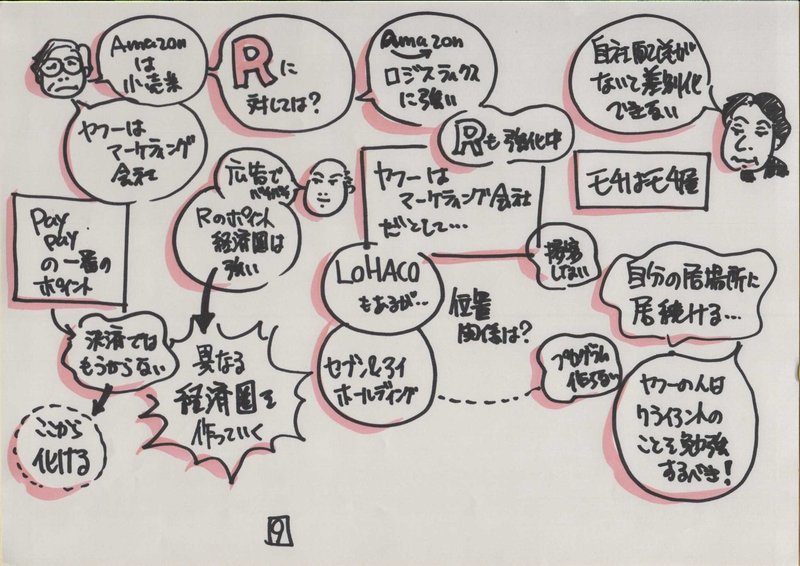 Amazon
は
小売業
Rに
対しては?
Amazon
ロジスティクス
に強い
自社配送が
ないで差別化
できない
ヤフーは
マーケティング
会社
Rも強化中
広告で
ヤフーは
マーケティング会社
だとして…
モチはモチ屋
Rのポイント
経済圏は
強い
Pay
Pay
の一番の
ポイント
LOHACO
もあるが…
しない
自分の居場所に
居続ける…
位置
関係は?
決済では
もうからない
異なる
経済圏を
作っていく
セブン&アイ
ホールディング
プログラム
作らない
ヤフーの人は
クライアントの
ことを勉強
するべき!
ここから
化ける
9